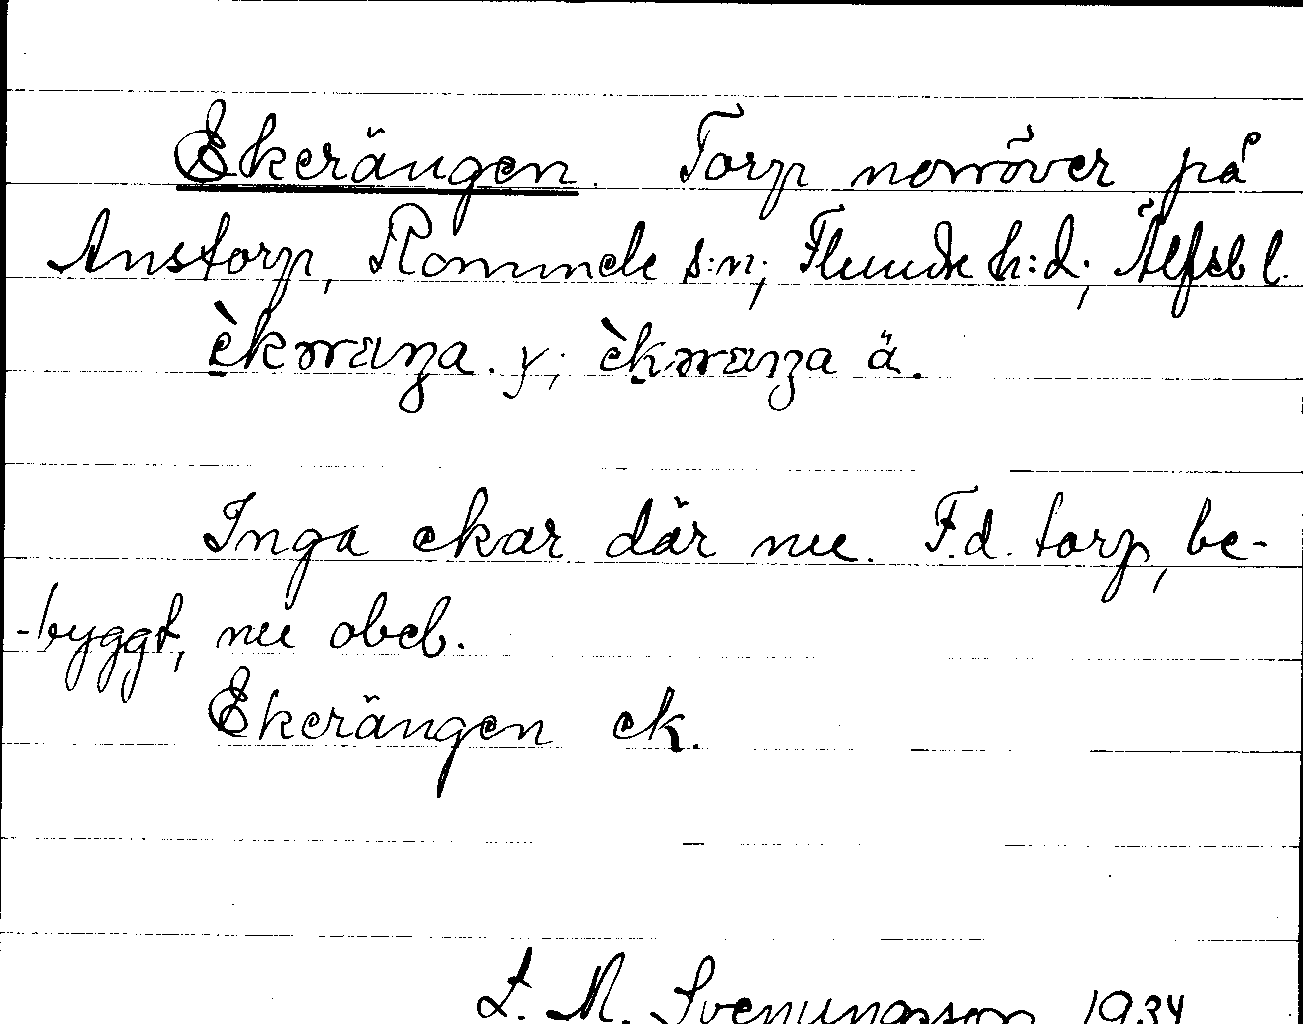 Ekerängen. Torp norröver på
Anstorp, Rommele s:n; Flundre h:d; Älfsb l.
èkərräŋa. y; èkərräŋa ä.
Inga ekar där nu. F.d. torp, be-
-byggt, nu obeb.
Ekerängen ek.
L. M. Svenungsson 1934